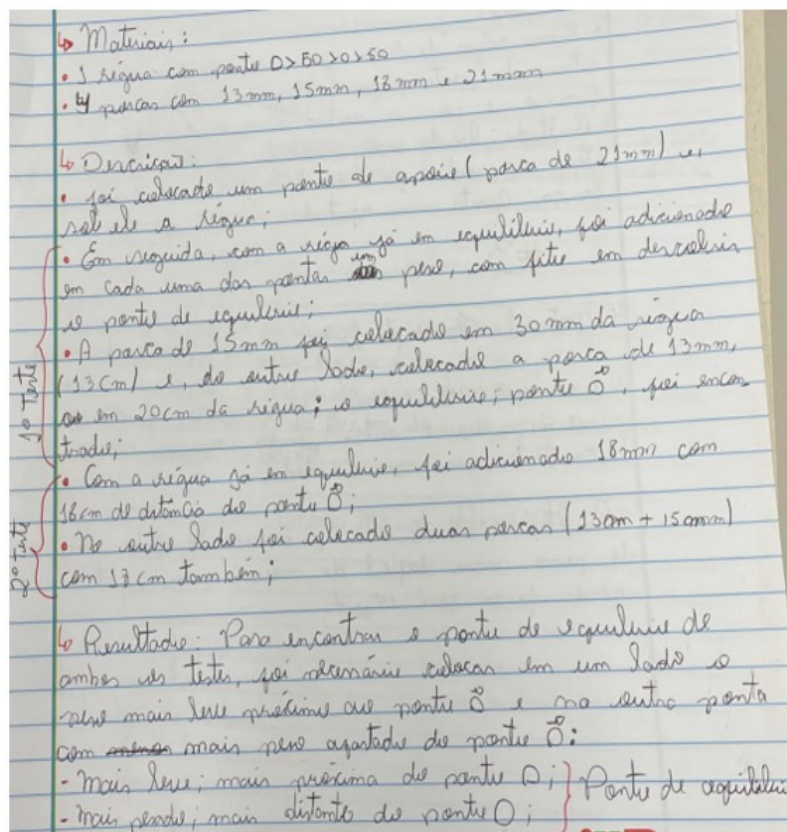 ↳ Materiais:
• 1 régua com ponto 0>50>0>50
• 4 porcas com 13mm, 15mm, 18mm e 21mm
↳ Descrição:
• foi colocado um ponto de apoio (porca de 21mm) e,
sob ele a régua;
• Em seguida, com a régua já em equilíbrio, foi adicionado
em cada uma das pontas um peso, com fito em descobrir
o ponto de equilíbrio;
• A porca de 15mm foi colocado em 30mm da régua
(13cm) e, do outro lado, colocado a porca de 13mm,
em 20cm da régua; o equilíbrio; ponto Ô, foi encon
trado;
1º Teste
• Com a régua já em equilíbrio, foi adicionado 18mm com
18cm de distância do ponto Ô;
• No outro lado foi colocado duas porcas (13cm + 15mm)
com 13cm também;
2º Teste
↳ Resultado: Para encontrar o ponto de equilíbrio de
ambos os testes, foi necessário colocar em um lado o
peso mais leve próximo ao ponto Ô e na outra ponta
com mais peso afastado do ponto Ô:
- Mais leve; mais próxima do ponto O;
- Mais pesado; mais distante do ponto O;
} Ponto de equilíbrio